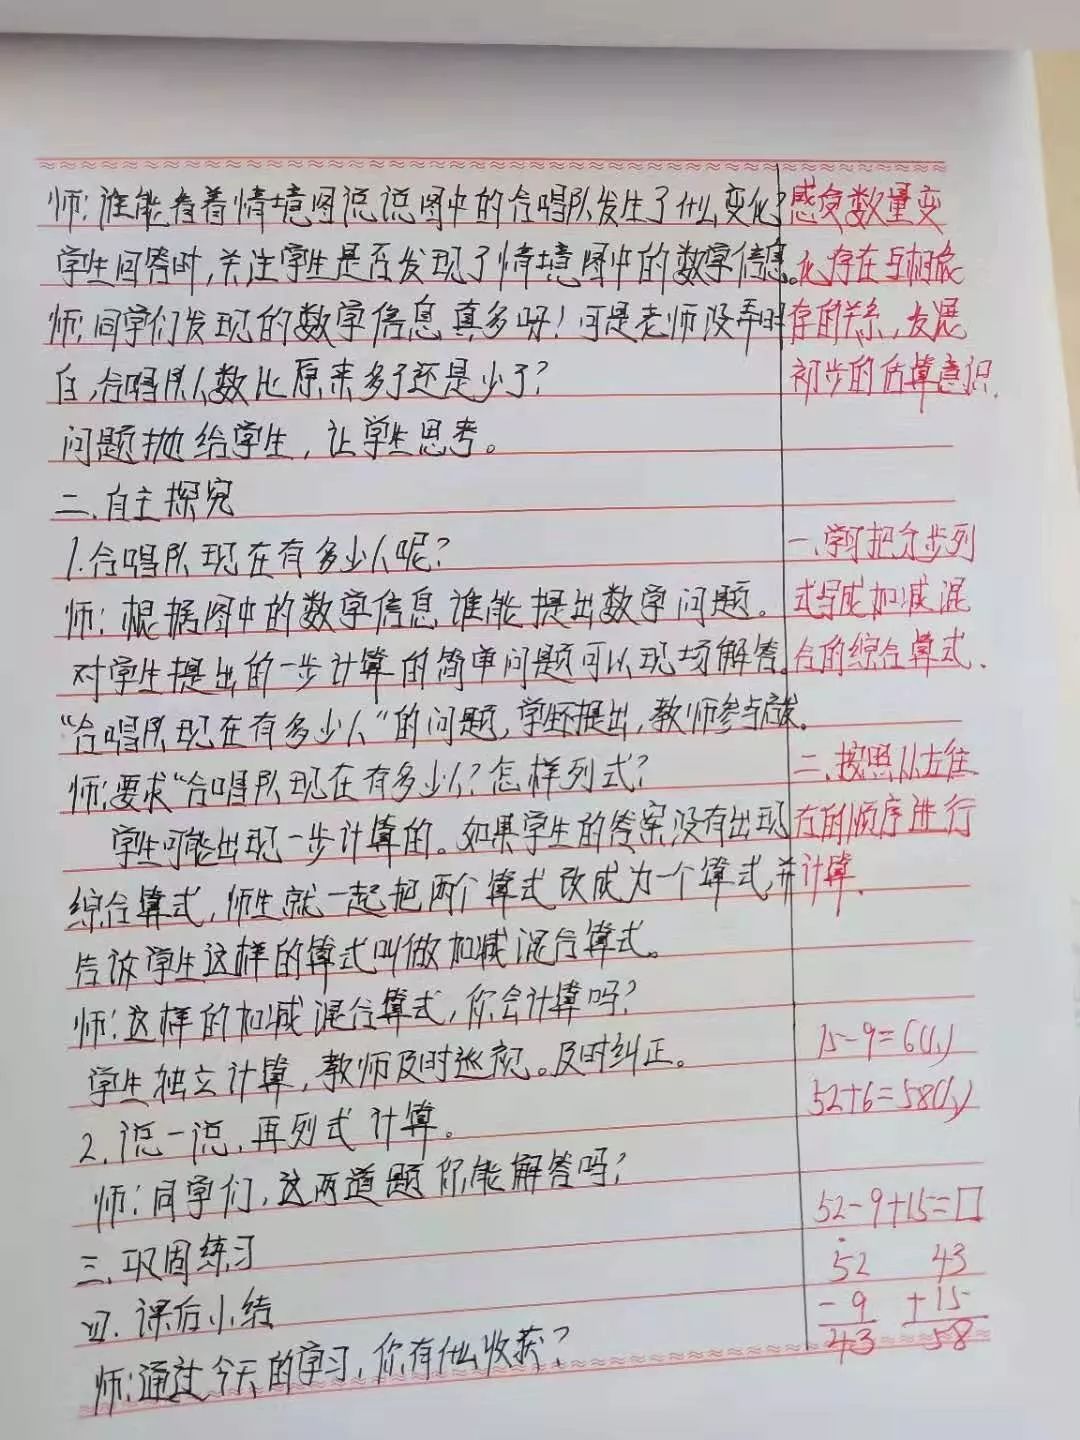 师:谁能看着情境图说说图中的合唱队发生了什么变化?
学生回答时,关注学生是否发现了情境图中的数学信息。
师:同学们发现的数学信息真多呀!可是老师没弄明
白,合唱队人数比原来多了还是少了?
问题抛给学生,让学生思考。
二、自主探究
1.合唱队现在有多少人呢?
师:根据图中的数学信息谁能提出数学问题。
对学生提出的一步计算的简单问题可以现场解答。
“合唱队现在有多少人”的问题,学生不提出,教师参与启发。
师:要求“合唱队现在有多少人?怎样列式?
学生可能出现一步计算的。如果学生的答案没有出现
综合算式,师生就一起把两个算式改成为一个算式,并
告诉学生这样的算式叫做加减混合算式。
师:这样的加减混合算式,你会计算吗?
学生独立计算,教师及时巡视。及时纠正。
2.说一说,再列式计算。
师:同学们,这两道题你能解答吗?
三、巩固练习
四、课后小结
师:通过今天的学习,你有什么收获?
感受数量变
化存在与相依
存的关系,发展
初步的估算意识.
一、学习把分步列
式写成加减混
合的综合算式.
二、按照从左往
右的顺序进行
计算.
15-9=6(人)
52+6=58(人)
52-9+15=□
52 43
-9 +15
43 58